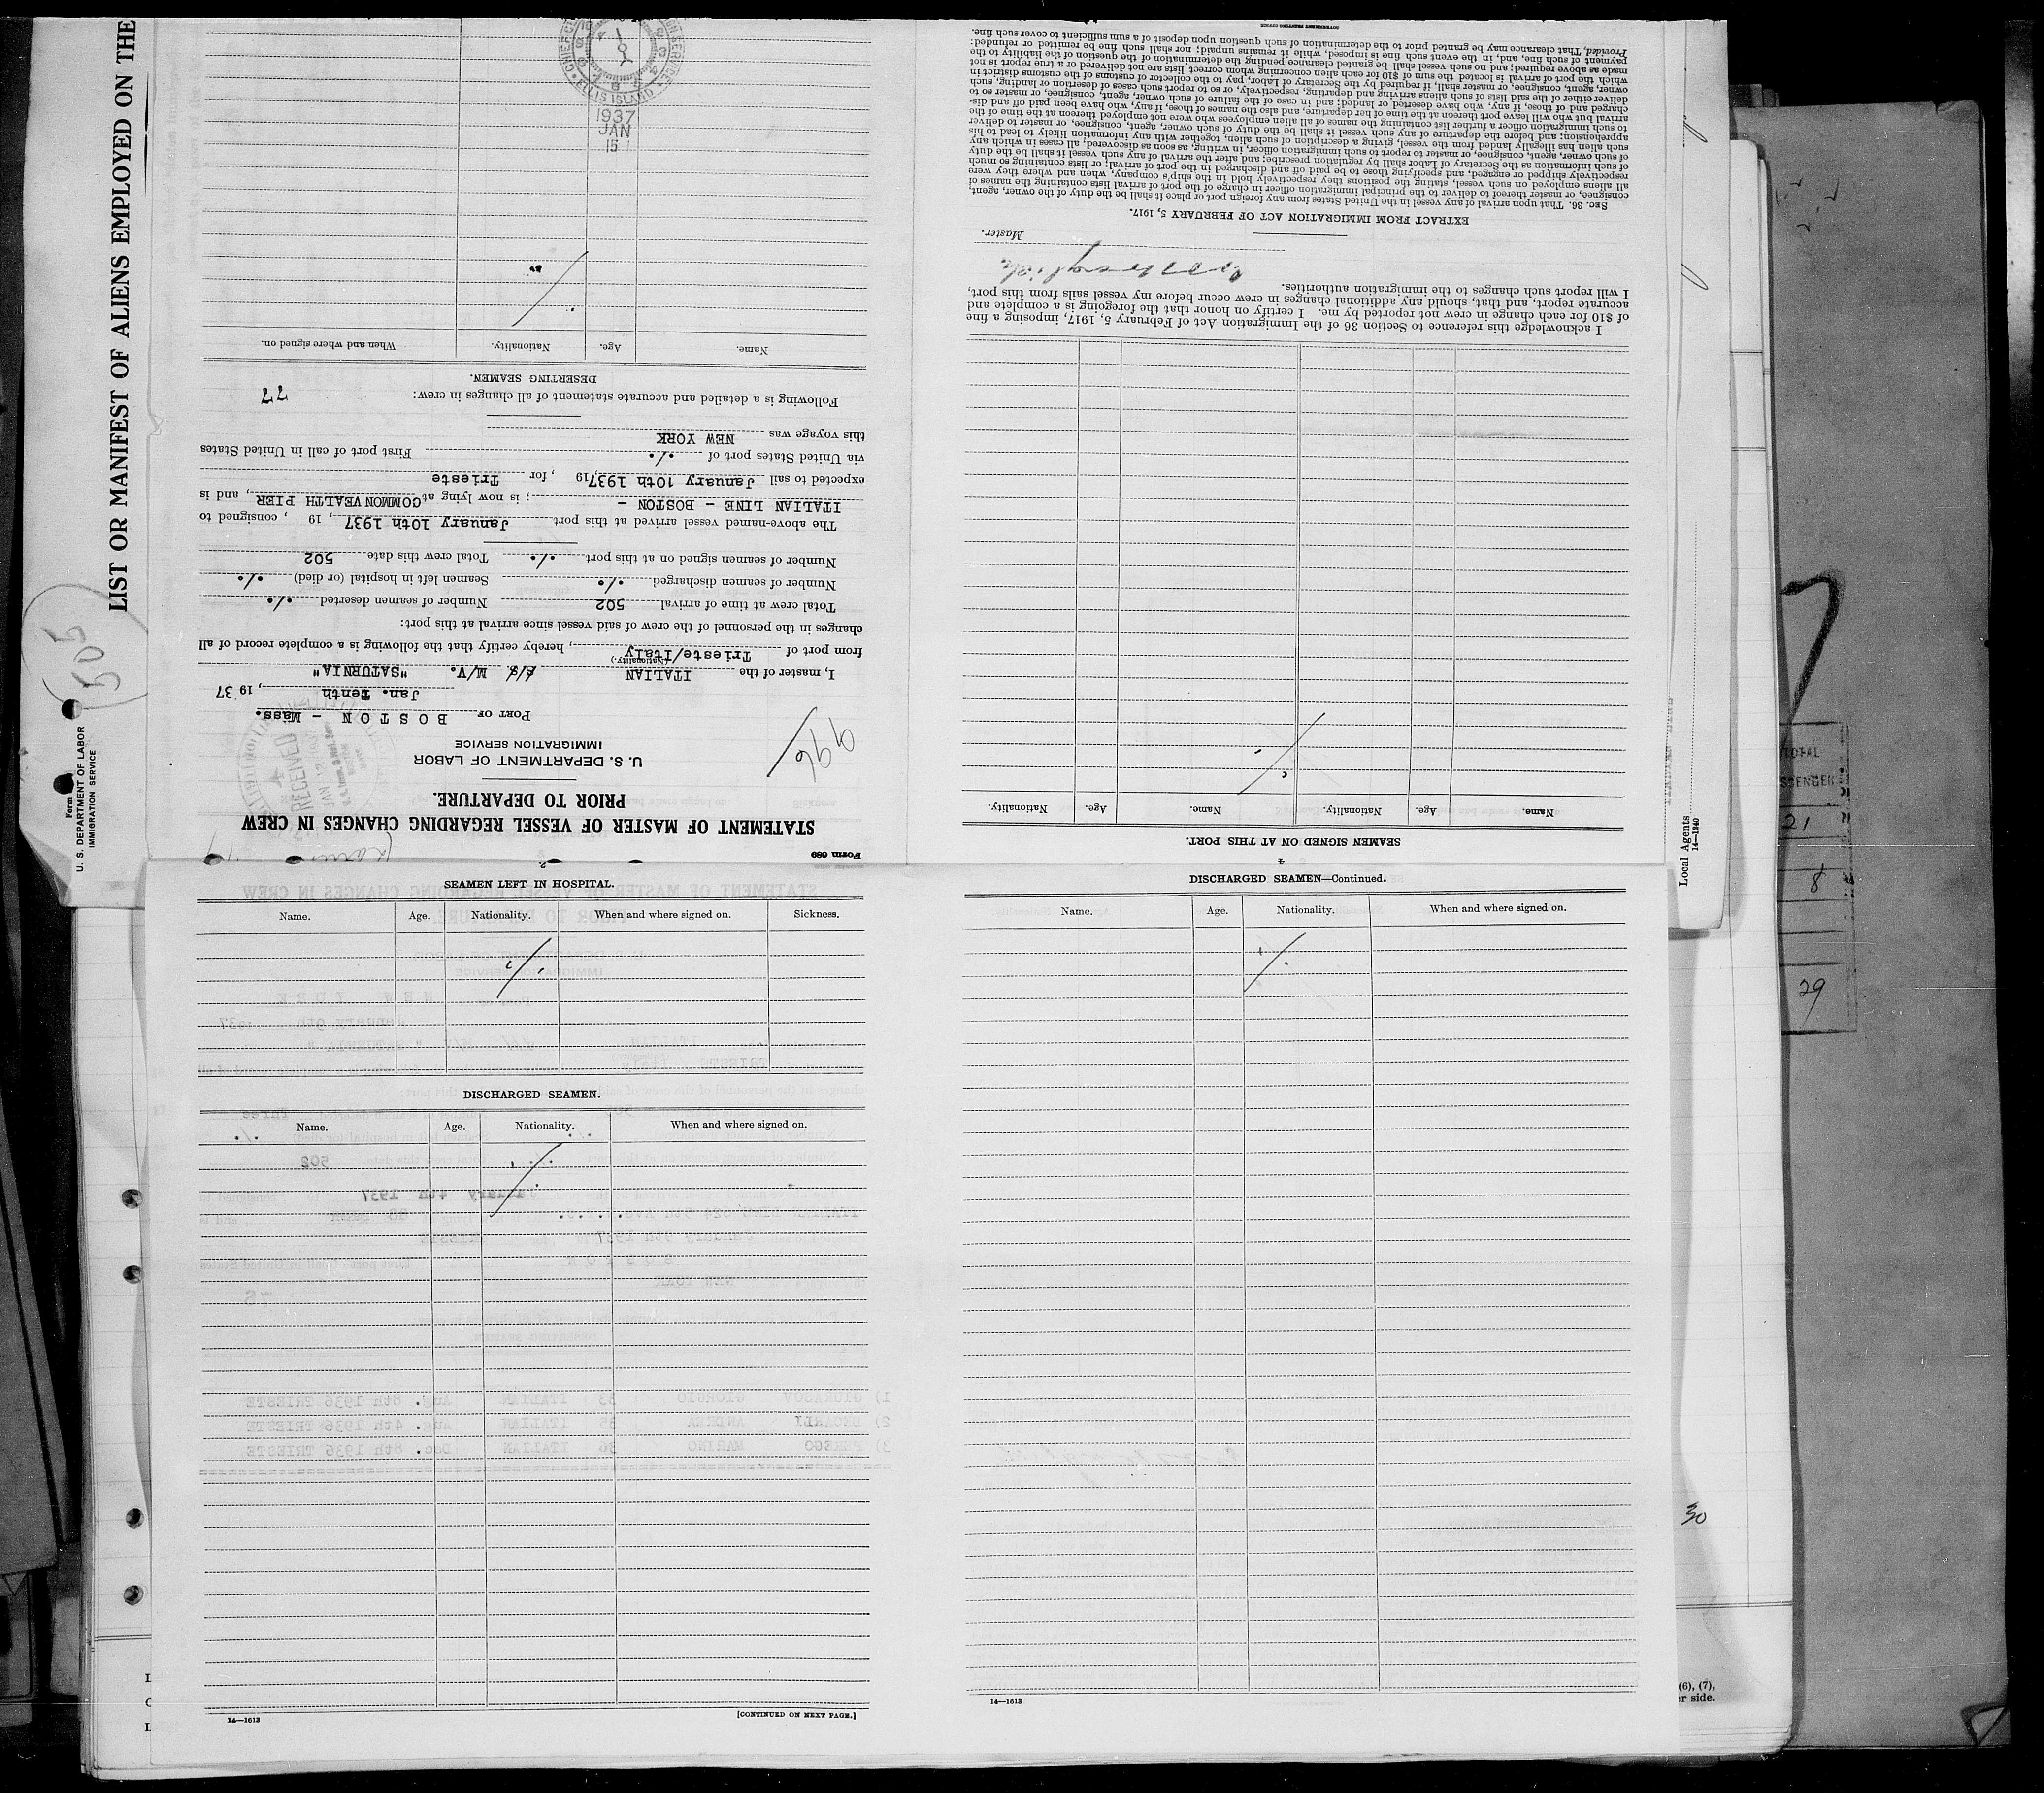 LIST OR MANIFEST OF ALIENS EMPLOYED ON THE
U. S. DEPARTMENT OF LABOR
IMMIGRATION SERVICE
Form
505
Form 689
STATEMENT OF MASTER OF VESSEL REGARDING CHANGES IN CREW
PRIOR TO DEPARTURE.
U. S. DEPARTMENT OF LABOR
IMMIGRATION SERVICE
996
RECEIVED
JAN 12
PORT OF BOSTON - Mass.
Jan. Tenth, 19 37
I, master of the ITALIAN S/S M/V. "SATURNIA"
(Nationality.)
from port of Trieste/Italy, hereby certify that the following is a complete record of all
changes in the personnel of the crew of said vessel since arrival at this port:
Total crew at time of arrival 502 Number of seamen deserted ./.
Number of seamen discharged ./. Seamen left in hospital (or died) ./.
Number of seamen signed on at this port ./. Total crew this date 502
The above-named vessel arrived at this port January 10th 1937, 19 , consigned to
ITALIAN LINE - BOSTON - ; is now lying at COMMONWEALTH PIER, and is
expected to sail January 10th 1937, 19 , for Trieste
via United States port of ./. First port of call in United States
this voyage was NEW YORK
Following is a detailed and accurate statement of all changes in crew: 77
DESERTING SEAMEN.
Name. Age. Nationality. When and where signed on.
./.
ELLIS ISLAND
1937
JAN
15
SEAMEN SIGNED ON AT THIS PORT.
Name. Age. Nationality. Name. Age. Nationality.
./.
I acknowledge this reference to Section 36 of the Immigration Act of February 5, 1917, imposing a fine
of $10 for each change in crew not reported by me. I certify on honor that the foregoing is a complete and
accurate report, and that, should any additional changes in crew occur before my vessel sails from this port,
I will report such changes to the immigration authorities.
Master.
EXTRACT FROM IMMIGRATION ACT OF FEBRUARY 5, 1917.
SEC. 36. That upon arrival of any vessel in the United States from any foreign port or place it shall be the duty of the owner, agent,
consignee, or master thereof to deliver to the principal immigration officer in charge of the port of arrival lists containing the names of
all aliens employed on such vessel, stating the positions they respectively hold in the ship's company, when and where they were
respectively shipped or engaged, and specifying those to be paid off and discharged in the port of arrival; or lists containing so much
of such information as the Secretary of Labor shall by regulation prescribe; and after the arrival of any such vessel it shall be the duty
of such owner, agent, consignee, or master to report to such immigration officer, in writing, as soon as discovered, all cases in which any
such alien has illegally landed from the vessel, giving a description of such alien, together with any information likely to lead to his
apprehension; and before the departure of any such vessel it shall be the duty of such owner, agent, consignee, or master to deliver
to such immigration officer a further list containing the names of all alien employees who were not employed thereon at the time of the
arrival but who will leave port thereon at the time of her departure, and also the names of those, if any, who have been paid off and dis-
charged and of those, if any, who have deserted or landed; and in case of the failure of such owner, agent, consignee, or master so to
deliver either of the said lists of such aliens arriving and departing, respectively, or so to report such cases of desertion or landing, such
owner, agent, consignee, or master shall, if required by the Secretary of Labor, pay to the collector of customs of the customs district in
which the port of arrival is located the sum of $10 for each alien concerning whom correct lists are not delivered or a true report is not
made as above required; and no such vessel shall be granted clearance pending the determination of the question of the liability to the
payment of such fine, and, in the event such fine is imposed, while it remains unpaid; nor shall such fine be remitted or refunded:
Provided, That clearance may be granted prior to the determination of such question upon deposit of a sum sufficient to cover such fine.
GOVERNMENT PRINTING OFFICE
SEAMEN LEFT IN HOSPITAL.
Name. Age. Nationality. When and where signed on. Sickness.
./.
DISCHARGED SEAMEN.
Name. Age. Nationality. When and where signed on.
./.
14—1613
[CONTINUED ON NEXT PAGE.]
DISCHARGED SEAMEN—Continued.
Name. Age. Nationality. When and where signed on.
./.
14—1613
Local Agents
14—1240
TOTAL
21
8
29
30
(6), (7),
er side.